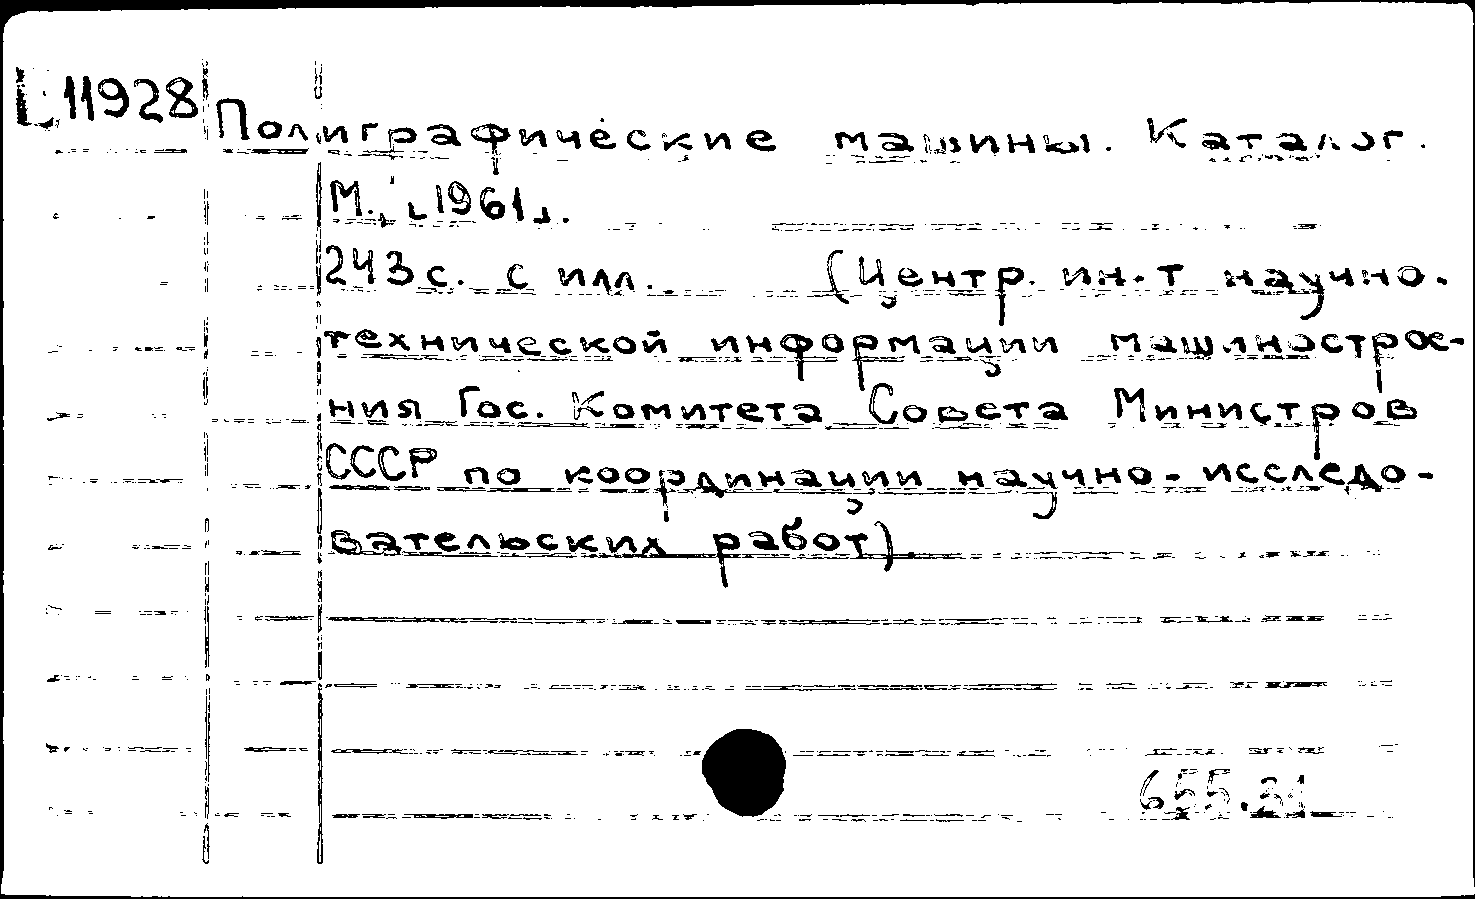 11928
Полиграфические машины. Каталог.
М., [1961].
243 с. с илл. (Центр. ин-т научно-
технической информации машинострое-
ния Гос. Комитета Совета Министров
СССР по координации научно-исследо-
вательских работ)
655.31